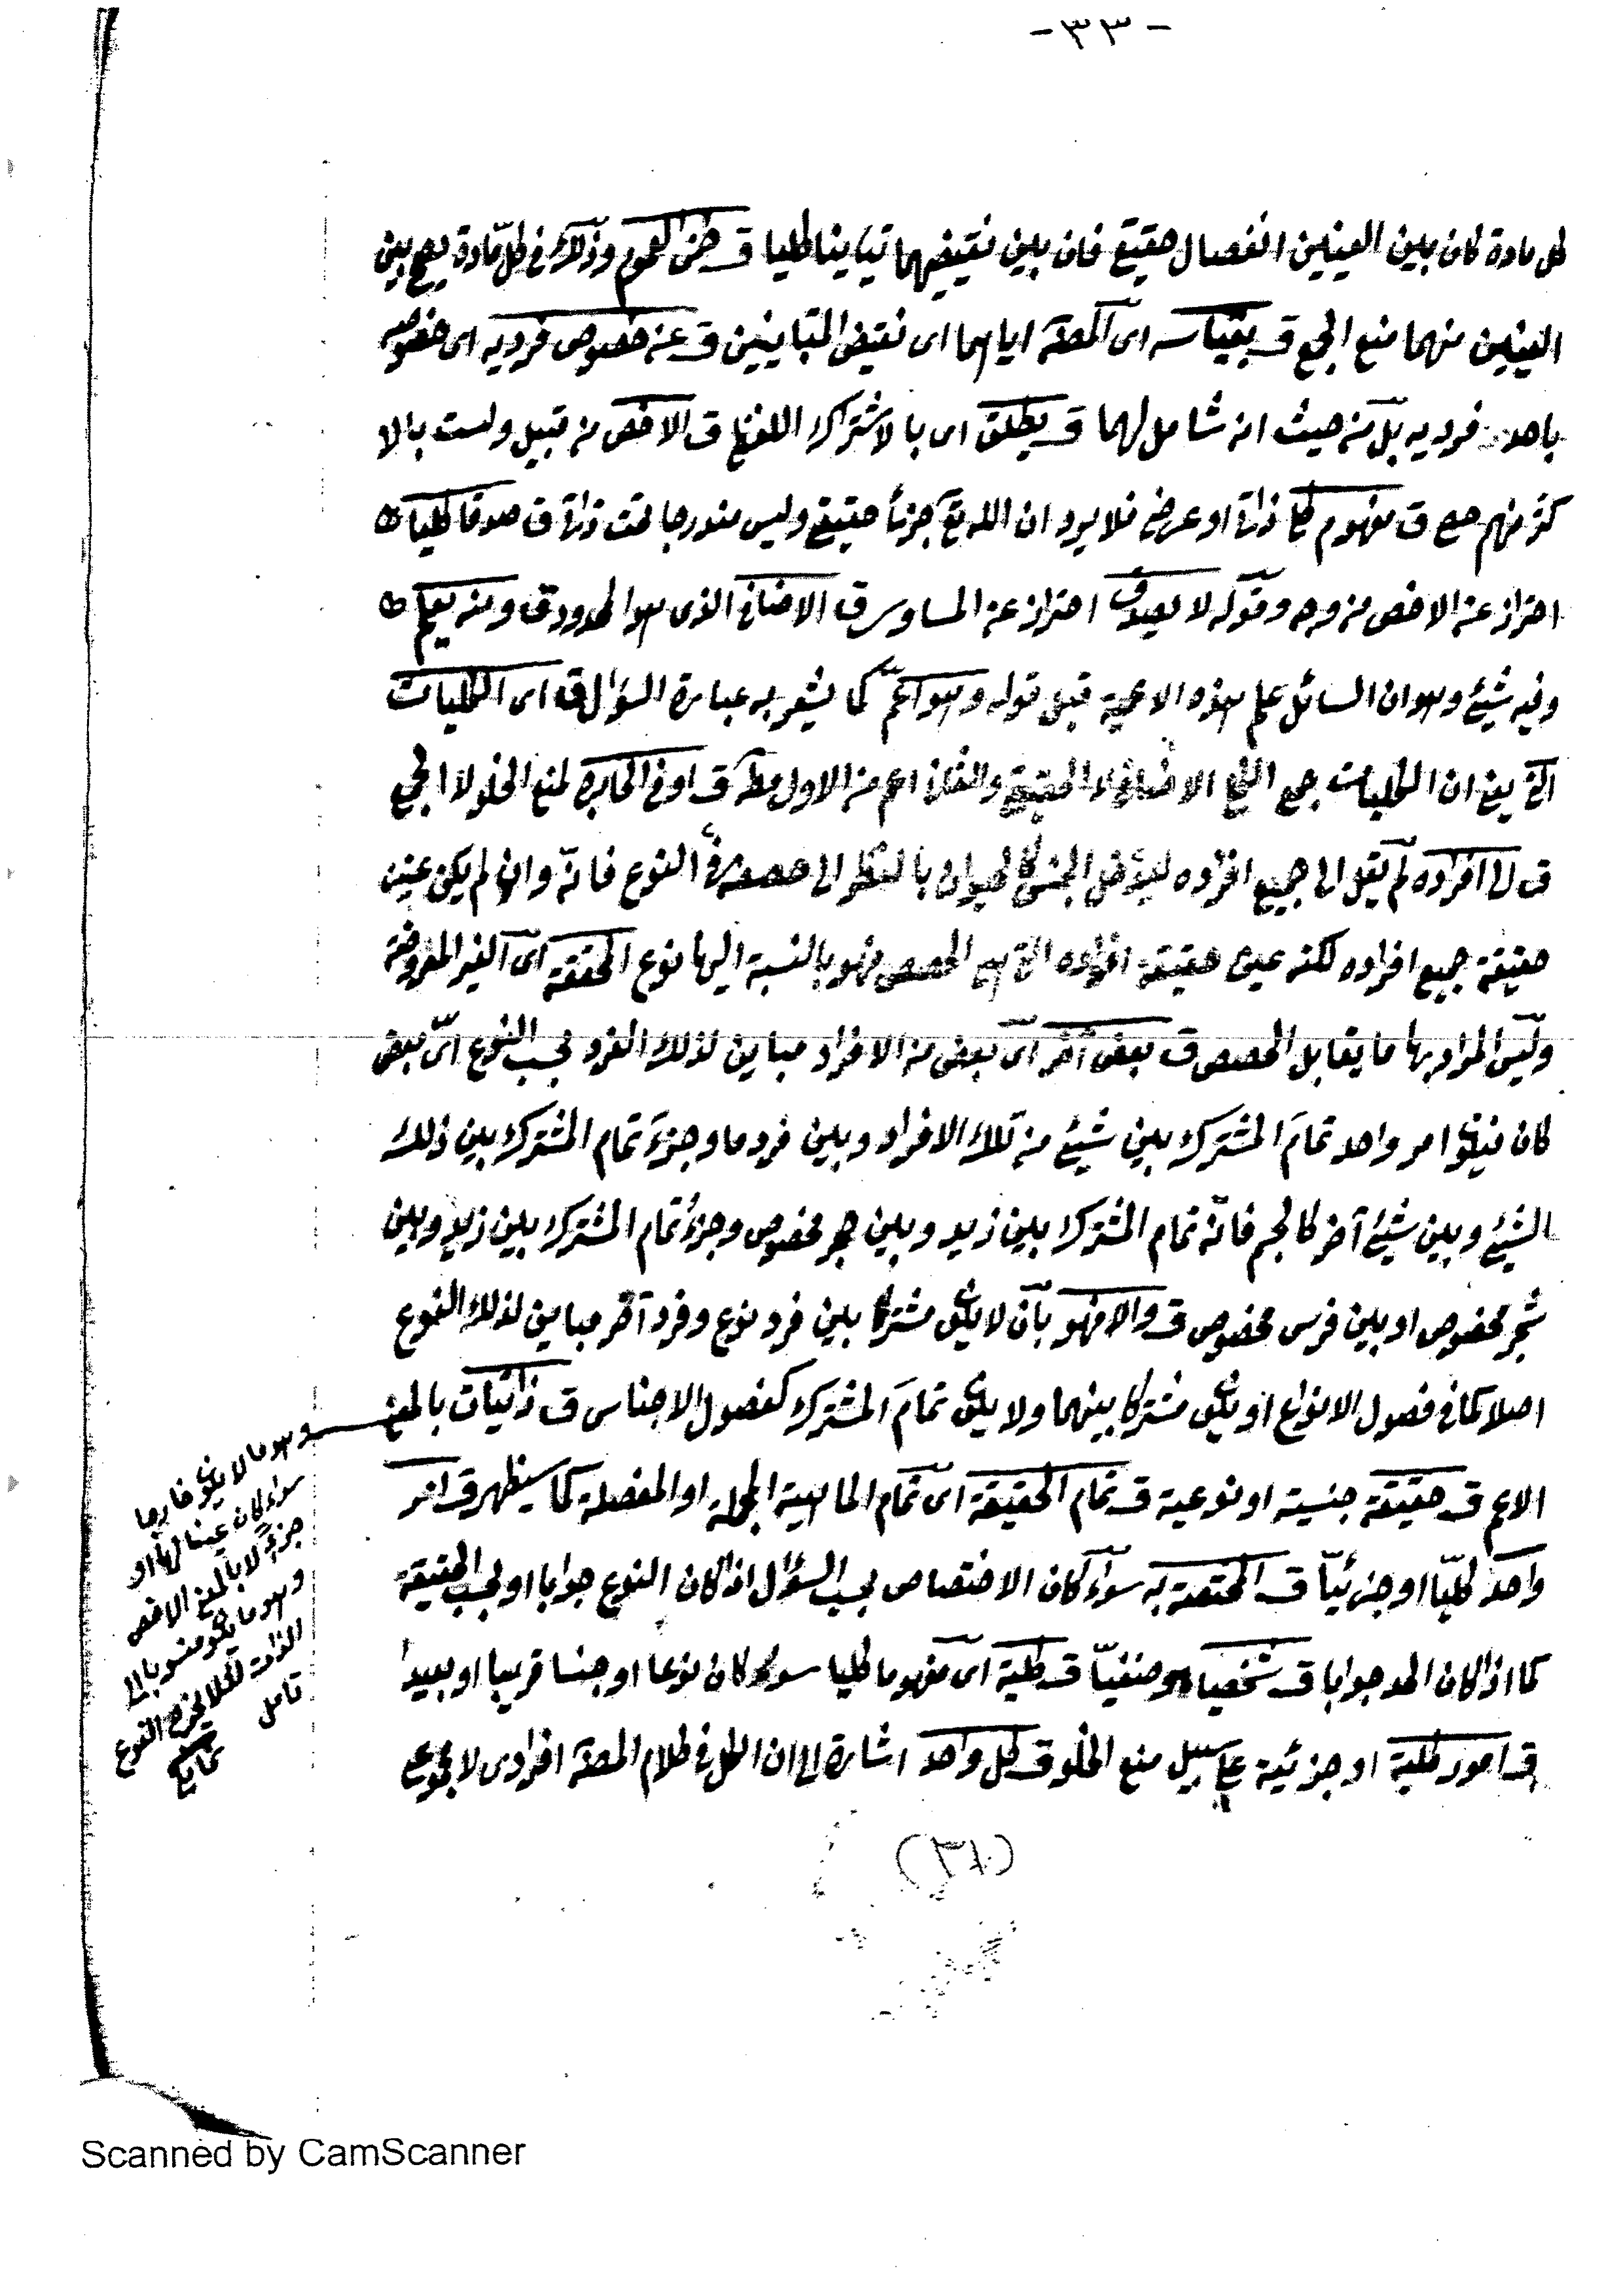 - ٣٣ -
كل مادة كان بين العينين انفصال حقيقي فان بين نقيضيهما تباينا كليا ق ضمن العموم وذلك في كل مادة يصح بين
العينين منهما منع الجمع ق بقياسه اى المص اياهما اى نقيض المتباينين ق عن خصوص فرديه اى خصوصه
باحد فرديه بل من حيث انه شامل لهما ق يطلق اى بالاشتراك اللفظى ق الاخص من قبيل ولست بالا
كثر منهم حصى ق مفهوم كلي ذاتى او عرضى فلا يرد ان الله تع جزئى حقيقى وليس مندرجا تحت ذاتى ق صدقا كليا
احتراز عن الاخص من وجه وقوله لا يصدق احتراز عن المساوى ق الاضافى الذى هو المحدود ق ومنه يعلم
وفيه شيئ وهو ان السائل علم هذه الاعمية قبل قوله وهو اعم كما يشعر به عبارة السؤال ق اى الكليات
التى يعنى ان الكليات جمع الكلى الاضافى لا الحقيقى والثانى اعم من الاول مط ق او فى الخارج لمنع الخلو لا الجمع
ق الى افراده لم يقل الى جميع افراده ليدخل الجنس كالحيوان بالنظر الى حصصه فى النوع فانه وان لم يكن عين
حقيقة جميع افراده لكنه عين حقيقة افراده التى هى الحصص فهو بالنسبة اليها نوع المحققة اى الغير المفروضة
وليس المراد بها ما يقابل الحصص ق بعض آخر اى بعض من الافراد مباين لذلك الفرد بحسب النوع اى بعض
كان فيكون امر واحد تمام المشترك بين شيئ من تلك الافراد وبين فرد ما وجزء تمام المشترك بين ذلك
الشيئ وبين شيئ آخر كالجسم فانه تمام المشترك بين زيد وبين حجر مخصوص وجزء تمام المشترك بين زيد وبين
شجر مخصوص او بين فرس مخصوص ق والا فهو بان لا يكون مشتركا بين فرد نوع وفرد آخر مباين لذلك النوع
اصلا كما فى فصول الانواع او يكون مشتركا بينهما ولا يكون تمام المشترك كفصول الاجناس ق ذاتيات بالمعنى
الاعم ق حقيقة جنسية او نوعية ق تمام الحقيقة اى تمام الماهية المجملة او المفصلة كما سيظهر ق امر
واحد كليا او جزئيا ق المختصة به سواء كان الاختصاص بحسب السؤال اذا كان النوع جوابا او بحسب الحقيقة
كما اذا كان الحد جوابا ق شخصيا او صنفيا ق كلية اى مفهوما كليا سواء كان نوعا او جنسا قريبا او بعيدا
ق امور كلية او جزئية على سبيل منع الخلو ق كل واحد اشارة الى ان الكل فى كلام المص افرادى لا مجموعى
وهو ما لا يكون خارجا
سواء كان عينا لها او
جزء لا بالمعنى الاخص
وهو ما يكون منسوبا الى
الذات لئلا يخرج النوع
تامل
(٣٨)
Scanned by CamScanner